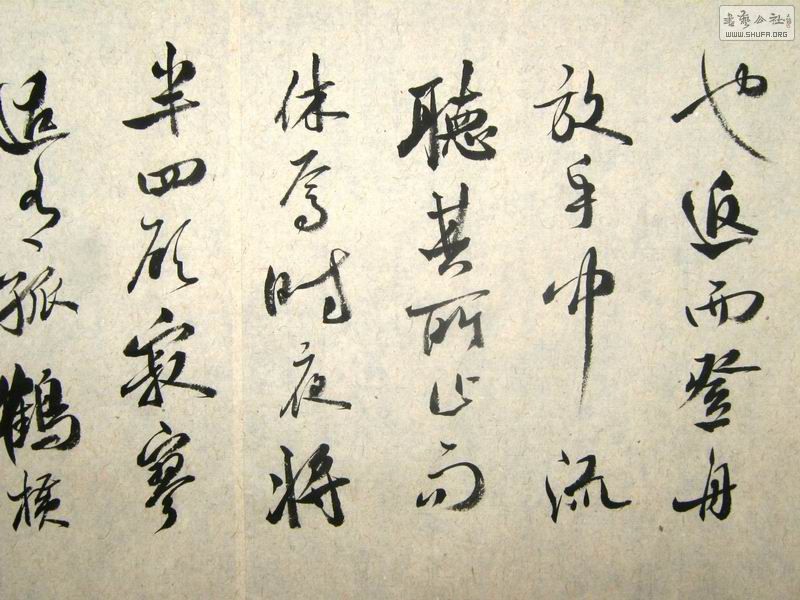 也返而登舟
放乎中流
聽其所止而
休焉時夜將
半四顧寂寥
適有孤鶴橫
書藝公社
WWW.SHUFA.ORG